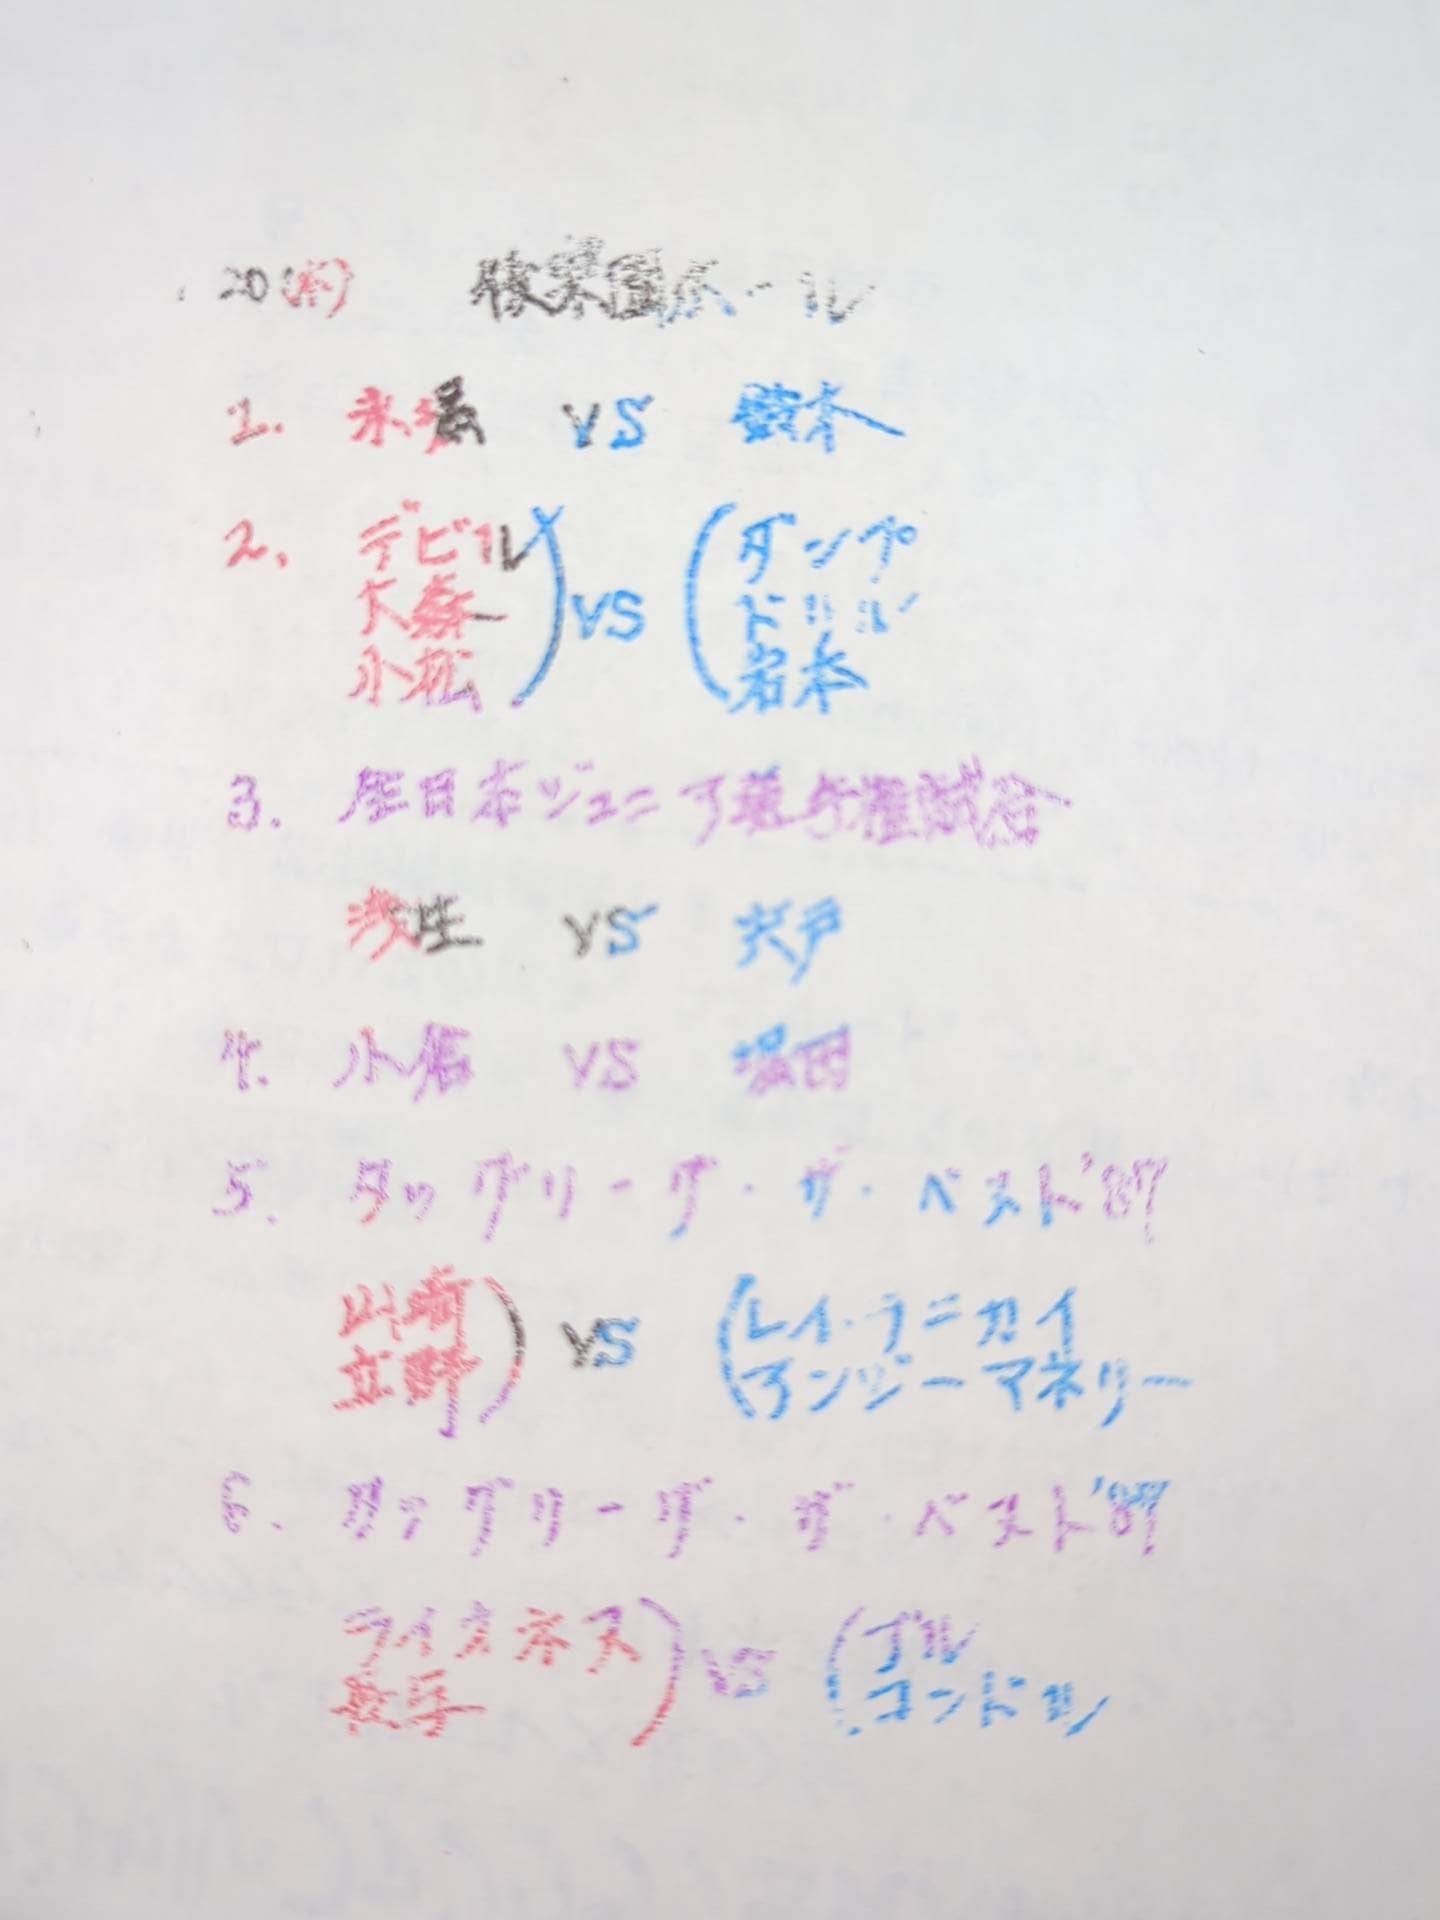 20(木) 後楽園ホール
1. 永堀 VS 鈴木
2. デビル
大森
小松) VS (ダンプ
ドリル
岩本
3. 全日本ジュニア選手権試合
浅生 VS 宍戸
4. 小倉 VS 堀田
5. タッグリーグ・ザ・ベスト'87
山崎
立野) VS (レイ・ラニカイ
アンジーマネリー
6. タッグリーグ・ザ・ベスト'87
ライオネス
敷手) VS (ブル
コンドル